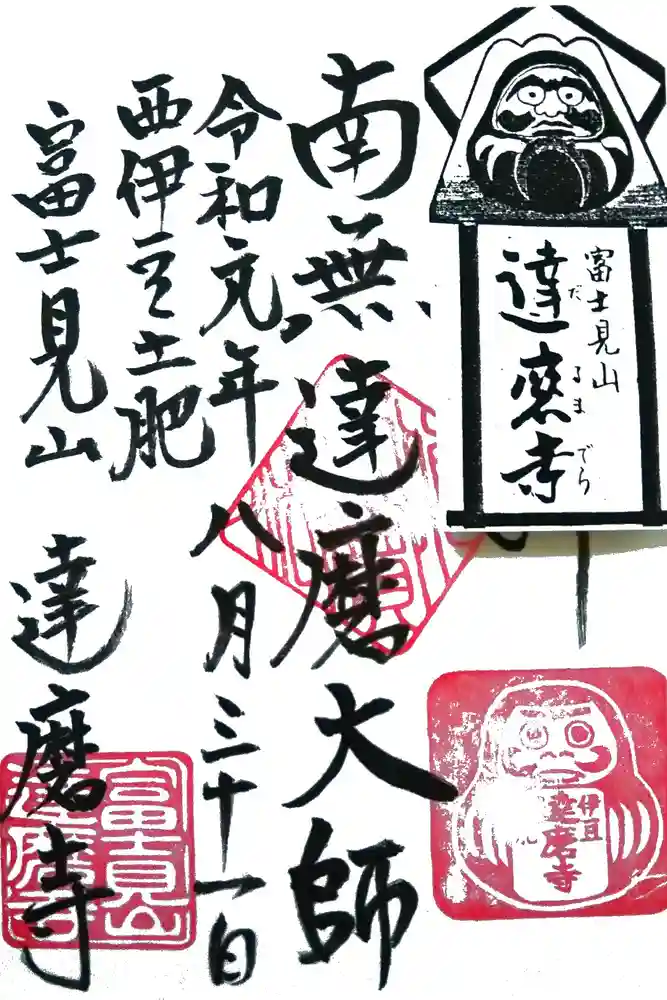 富士見山
達磨寺
だるまでら
南無達磨大師
令和元年八月三十一日
西伊豆土肥
富士見山 達磨寺
伊豆
達磨寺
富士見山
達磨寺